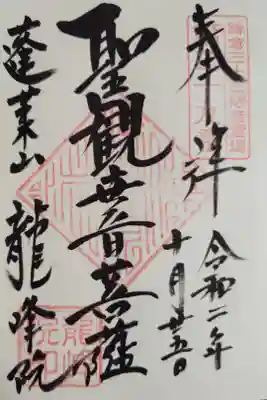 奉拝
令和二年
十月廿五日
聖観世音菩薩
蓬莱山 龍峰院